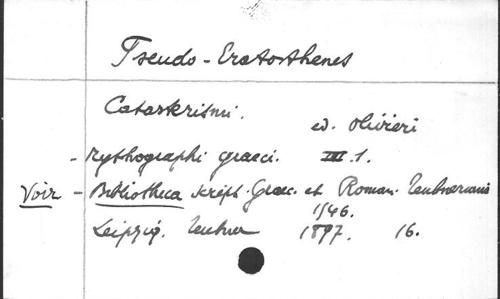 Pseudo-Eratosthenes
Catasterismi.
ed. Olivieri
- Mythographi graeci. III.1.
Voir - Bibliotheca script. Graec. et Roman. Teubneriana
1546.
Leipzig. Teubner 1897. 16.